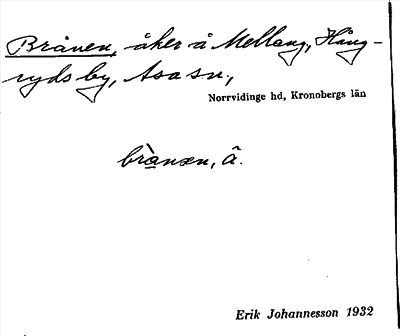 Brånen, åker å Mellang, Häng-
ryds by, Asa sn,
Norrvidinge hd, Kronobergs län
brànən, å.
Erik Johannesson 1932